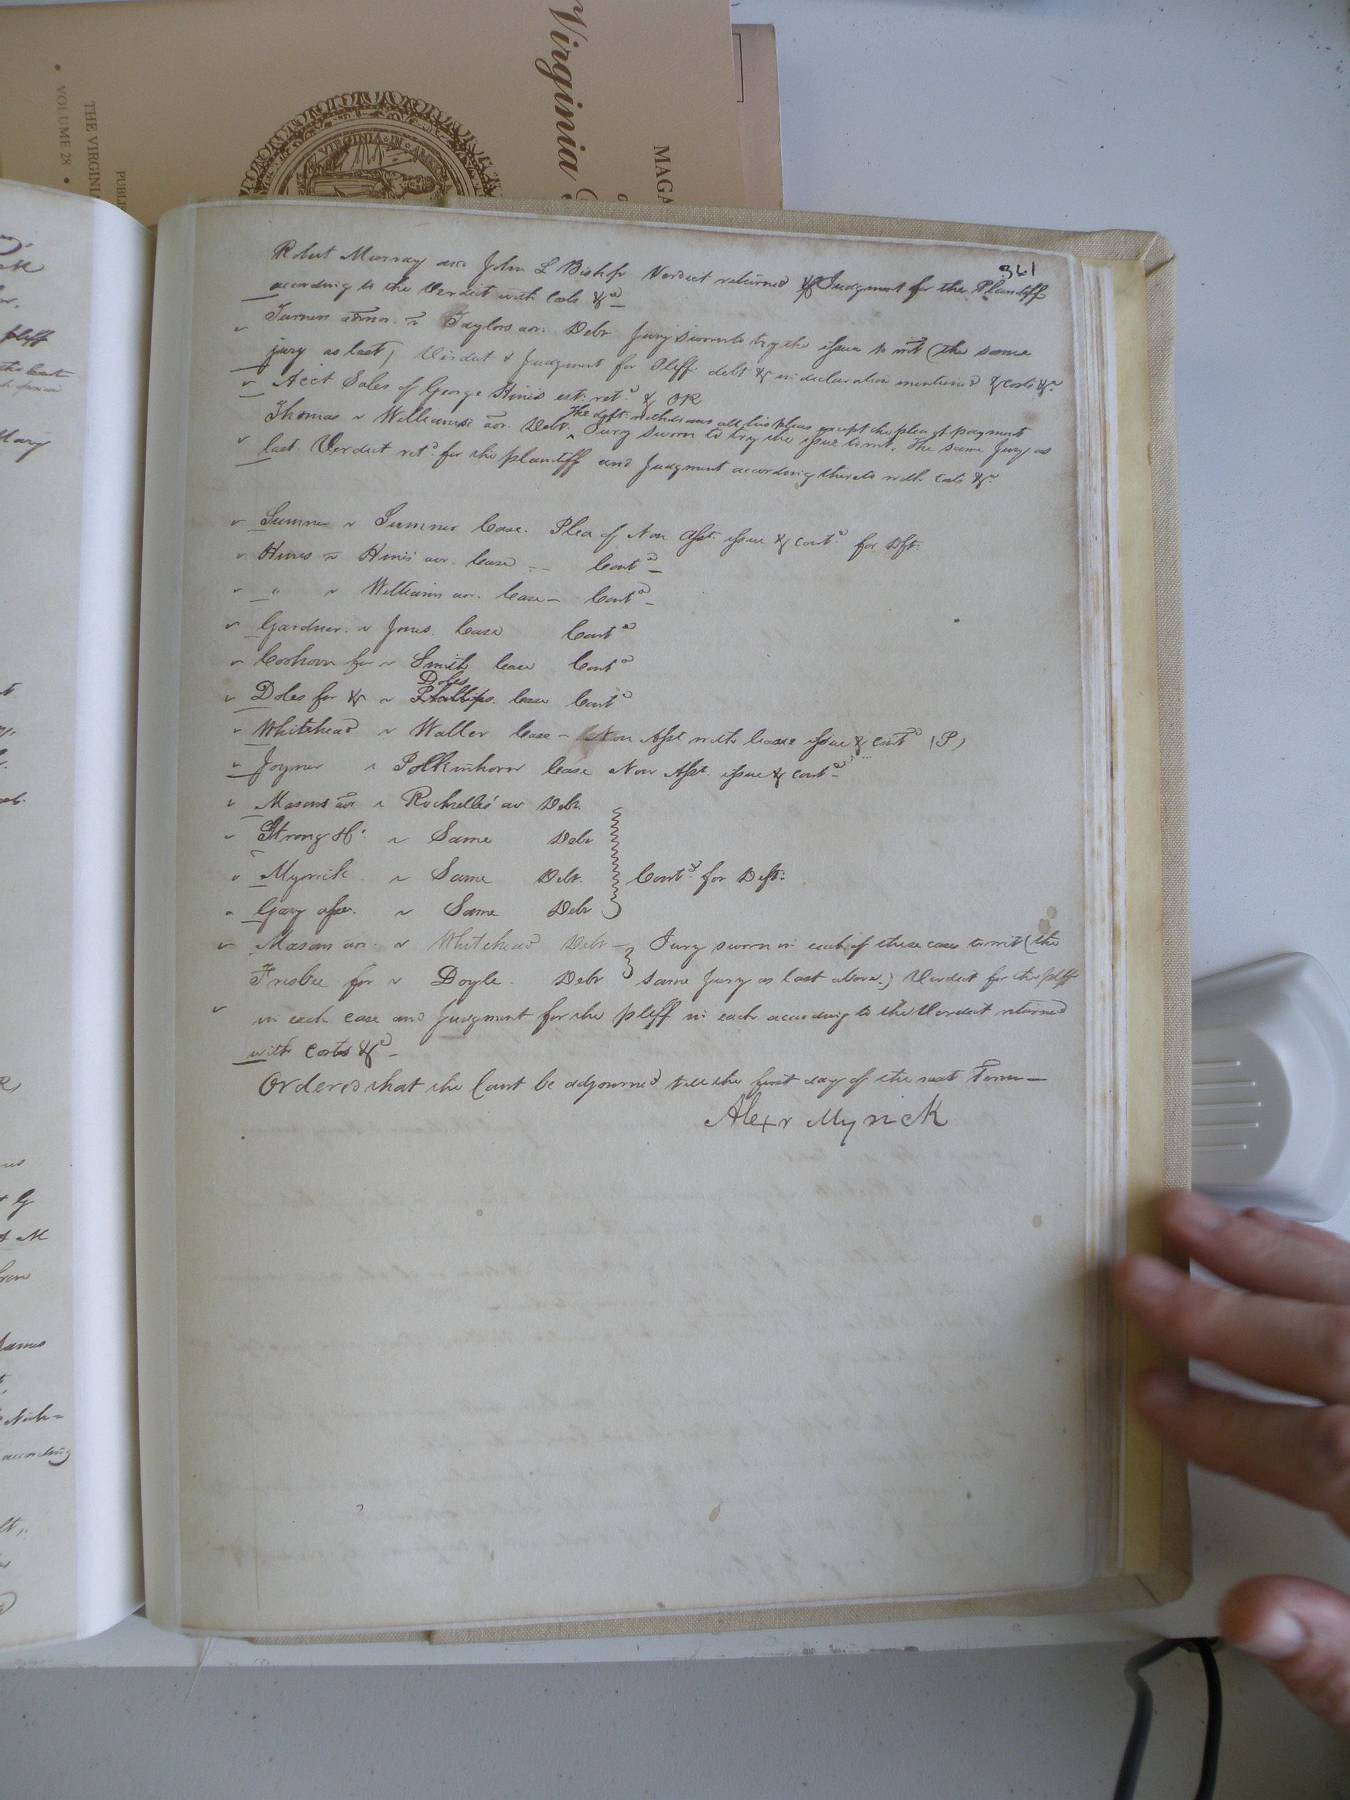 Virginia
MAGA
PUBLI
THE VIRGINI
• VOLUME 28 •
VIRGINIA · IN · AM
361
Robert Murray and John L Bishop Verdict returned & Judgment for the Plaintiff
according to the Verdict with Costs &c
Turners admor. v Taylors aor. Debt Jury sworn to try the issue to wit (the same
jury as last) Verdict & Judgment for Plff. debt & in declaration mentioned & costs &c
Acct Sales of George Hines est. retd & OR
The deft. withdraws all his pleas except the plea of payment
Thomas v Williams aor. Debt ^ Jury sworn to try the issue to wit. The same Jury as
last. Verdict retd for the plantiff and Judgment according thereto with Costs &c
Sumner v Sumner Case. Plea of Non Asst issue & contd for Dft.
Hines v Hines aor. Case — Contd
" v Williams aor. Case — Contd
Gardner v Jones. Case Contd
Cohoon for v Smith Case Contd
Doles
Doles for & v Phillips. Case Contd
Whitehead v Waller Case — Non Asst with leave issue & contd (P)
Joyner v Polkinhorn Case Non Asst issue & contd
Masons aor v Rochelles aor Debt
Strong &c v Same Debt
Myrick v Same Debt. Contd for Deft.
Gary assee. v Same Debt
Mason aor v Whitehead Debt — Jury sworn in each of these cases to wit (the
Frisbee for v Doyle. Debt same Jury as last above.) Verdict for the plff
in each case and Judgment for the plff in each according to the Verdict returned
with costs &c —
Ordered that the Court be adjourned till the first day of the next Term —
Alexr Myrick